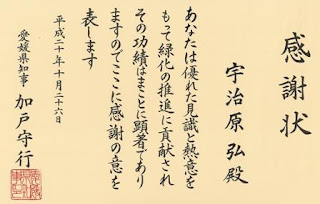 感謝状
宇治原弘殿
あなたは優れた見識と熱意を
もって緑化の推進に貢献され
その功績はまことに顕著であり
ますのでここに感謝の意を
表します
平成二十年十月二十六日
愛媛県知事 加戸守行